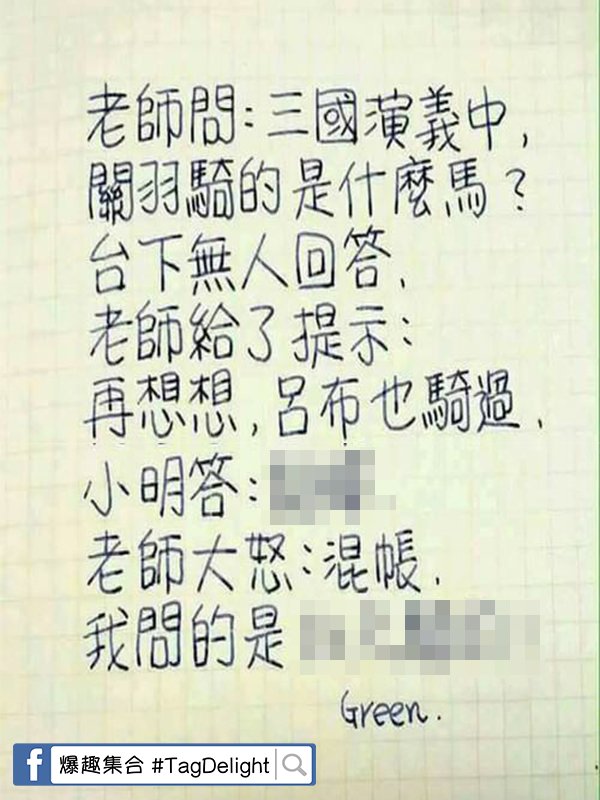 老師問:三國演義中,
關羽騎的是什麼馬?
台下無人回答.
老師給了提示:
再想想,呂布也騎過.
小明答:
老師大怒:混帳.
我問的是
Green.
爆趣集合 #TagDelight